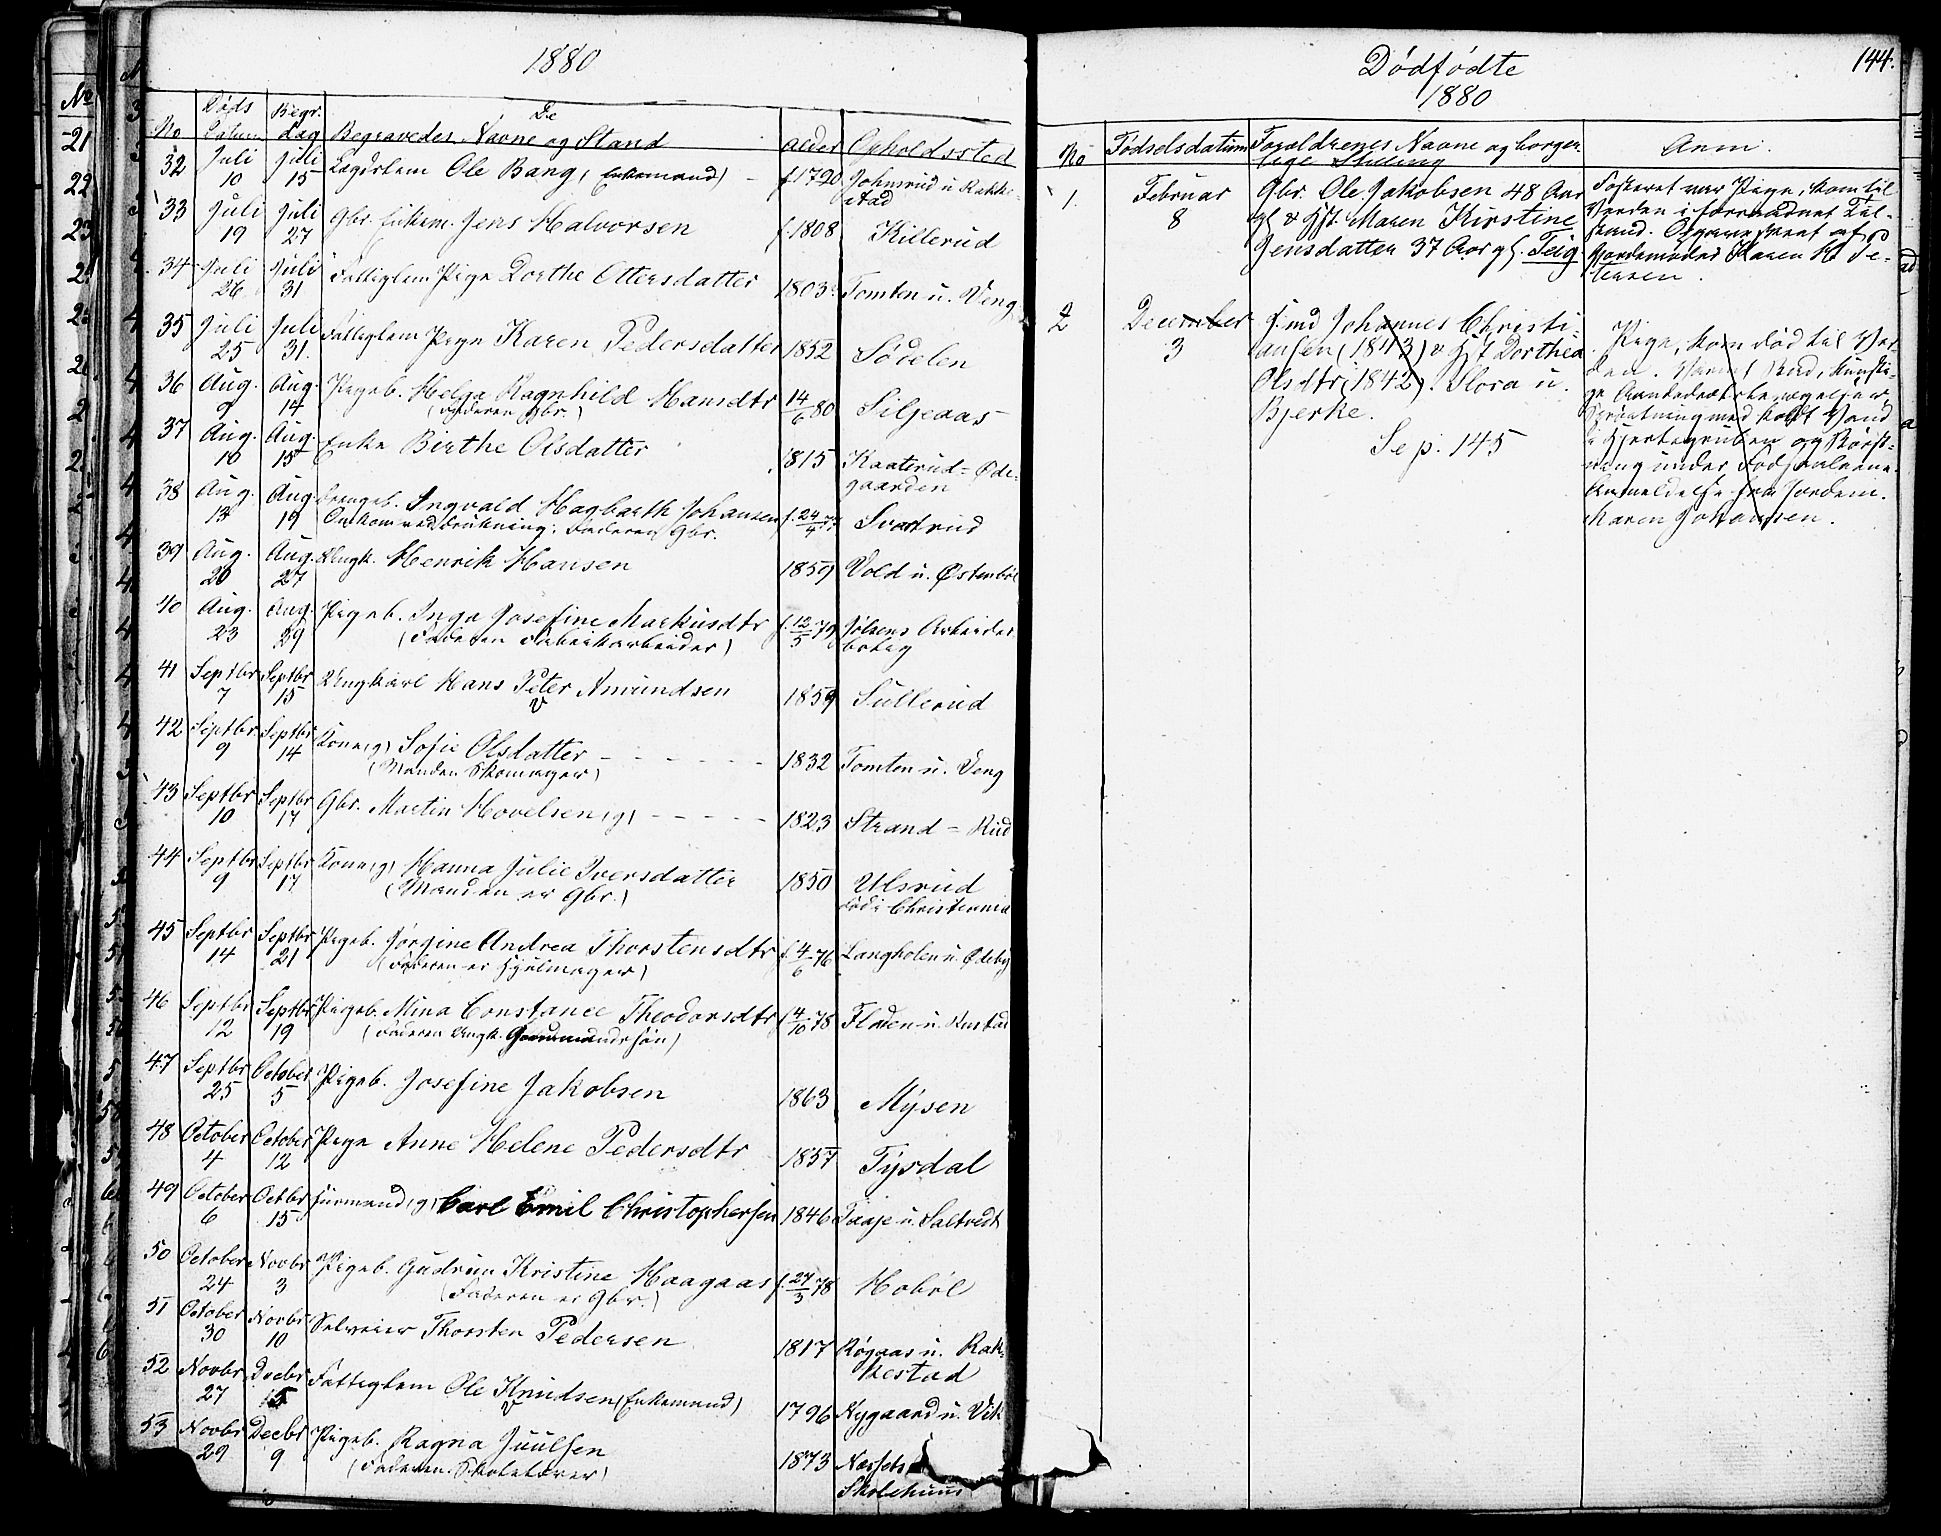 1880
No Døds Datum Begr. dag De Begravedes Navne og Stand Alder Opholdssted
32 Juli 10 Juli 15 Lægdslem Ole Bang, (Enkemand) - f. 1790 Johnsrud u. Rakke-
stad
33 Juli 19 Juli 27 Gbr. Enkem. Jens Halvorsen f. 1808 Killerud
34 Juli 26 Juli 31 Fattiglem Pige Dorthe Ottersdatter 1803 Tomten u. Veng
35 Juli 25 Juli 31. Fattiglem Pige Karen Pedersdatter 1852 Sødelen
36 Aug. 9 Aug. 14 Pigeb. Helga Ragnhild Hansdtr 14/6 80 Siljeaas
(Faderen Gbr.)
37 Aug. 10 Aug. 15 Enke Birthe Olsdatter 1815 Kaaterud = Øde-
gaarden
38 Aug. 13 Aug. 19 Drengeb. Ingvald Hagbarth Johansen f. 24/4 Svartrud
Omkom ved Drukning. Faderen Gbr.
39 Aug. 20 Aug. 27 Ungk. Henrik Hansen 1859 Vold u. Østenbøl
40 Aug. 23 Aug. 29 Pigeb. Inga Josefine Markusdtr f. 12/5 79 Jølsens Arbeider
bolig
(Faderen Fabrikarbeider)
41 Septbr 7 Septbr 15 Ungkarl Hans Peter Amundsen 1859 Sullerud
42 Septbr 9 Septbr 14 Kone (g) Sofie Olsdatter - - - - - - 1832 Tomten u. Veng
(Manden Skomager)
43 Septbr 10 Septbr 17 Gbr. Martin Hovelsen (g) - - - - - 1823 Strand = Rud
44 Septbr 9 Septbr 17 Kone (g) Hanna Julie Iversdatter 1850 Ulsrud
(Manden er Gbr.) født i Christiania
45 Septbr 14 Septbr 21 Pigeb. Jørgine Andrea Thorstensdtr f. 4/6 76 Langholen u. Ødeby
(Faderen er Hjulmager)
46 Septbr 12 Septbr 19 Pigeb. Mina Constance Theodorsdtr f 4/10 78 Fladen u. Rustad
(Faderen Ungk. Gaardmandssøn)
47 Septbr 25 October 5 Pigeb. Josefine Jakobsen 1863 Mysen
48 October 4 October 12 Pige Anne Helene Pedersdtr 1857 Tysdal
49 October 6 Octbr 15 Huusmand (g) Carl Emil Christophersen 1846 Taaje u. Saltvedt
50 October 24 Novbr 3 Pigeb. Gudrun Kristine Haagaas f. 27/3 78 Hobøl
(Faderen er Gbr.)
51 October 30 Novbr 10 Selveier Thorsten Pedersen 1817 Røgaas u. Rak-
kestad
52 Novbr 27 Decbr 15 Fattiglem Ole Knudsen (Enkemand) 1796 Nygaard u. Vik
53 Novbr 29 Decbr 9 Pigeb. Ragna Juulsen 1873 Næssets
(Faderen Skolelærer) Skolehuus
144.
Dødfødte
1880
No Fødselsdatum Forældrenes Navne og borger-
lige Stilling Anm.
1. Februar 8 Gbr. Ole Jakobsen 48 Aar
gl & Hst. Maren Kirstine
Jensdatter 37 Aar gl. Teig
Fosteret var Pige, kom til
Verden i forraadnet Til-
stand. Opgave skreet af
Jordemoder Karen M Pe-
tersen.
2 December 3 f. md Johannes Christi-
ansen (1843) & Hst Dorthea
Olsdtr (1842). Flora u.
Bjerke.
Se p. 145
Pige, kom død til Ver-
den. Varmt Bad, kunsti-
ge Aandedrætsbevægelser,
Sprøitning med koldt Vand
i Hjertegruben og Børst-
ning under Fodsaalerne.
Anmeldelse fra Jordem.
Maren Johansen.